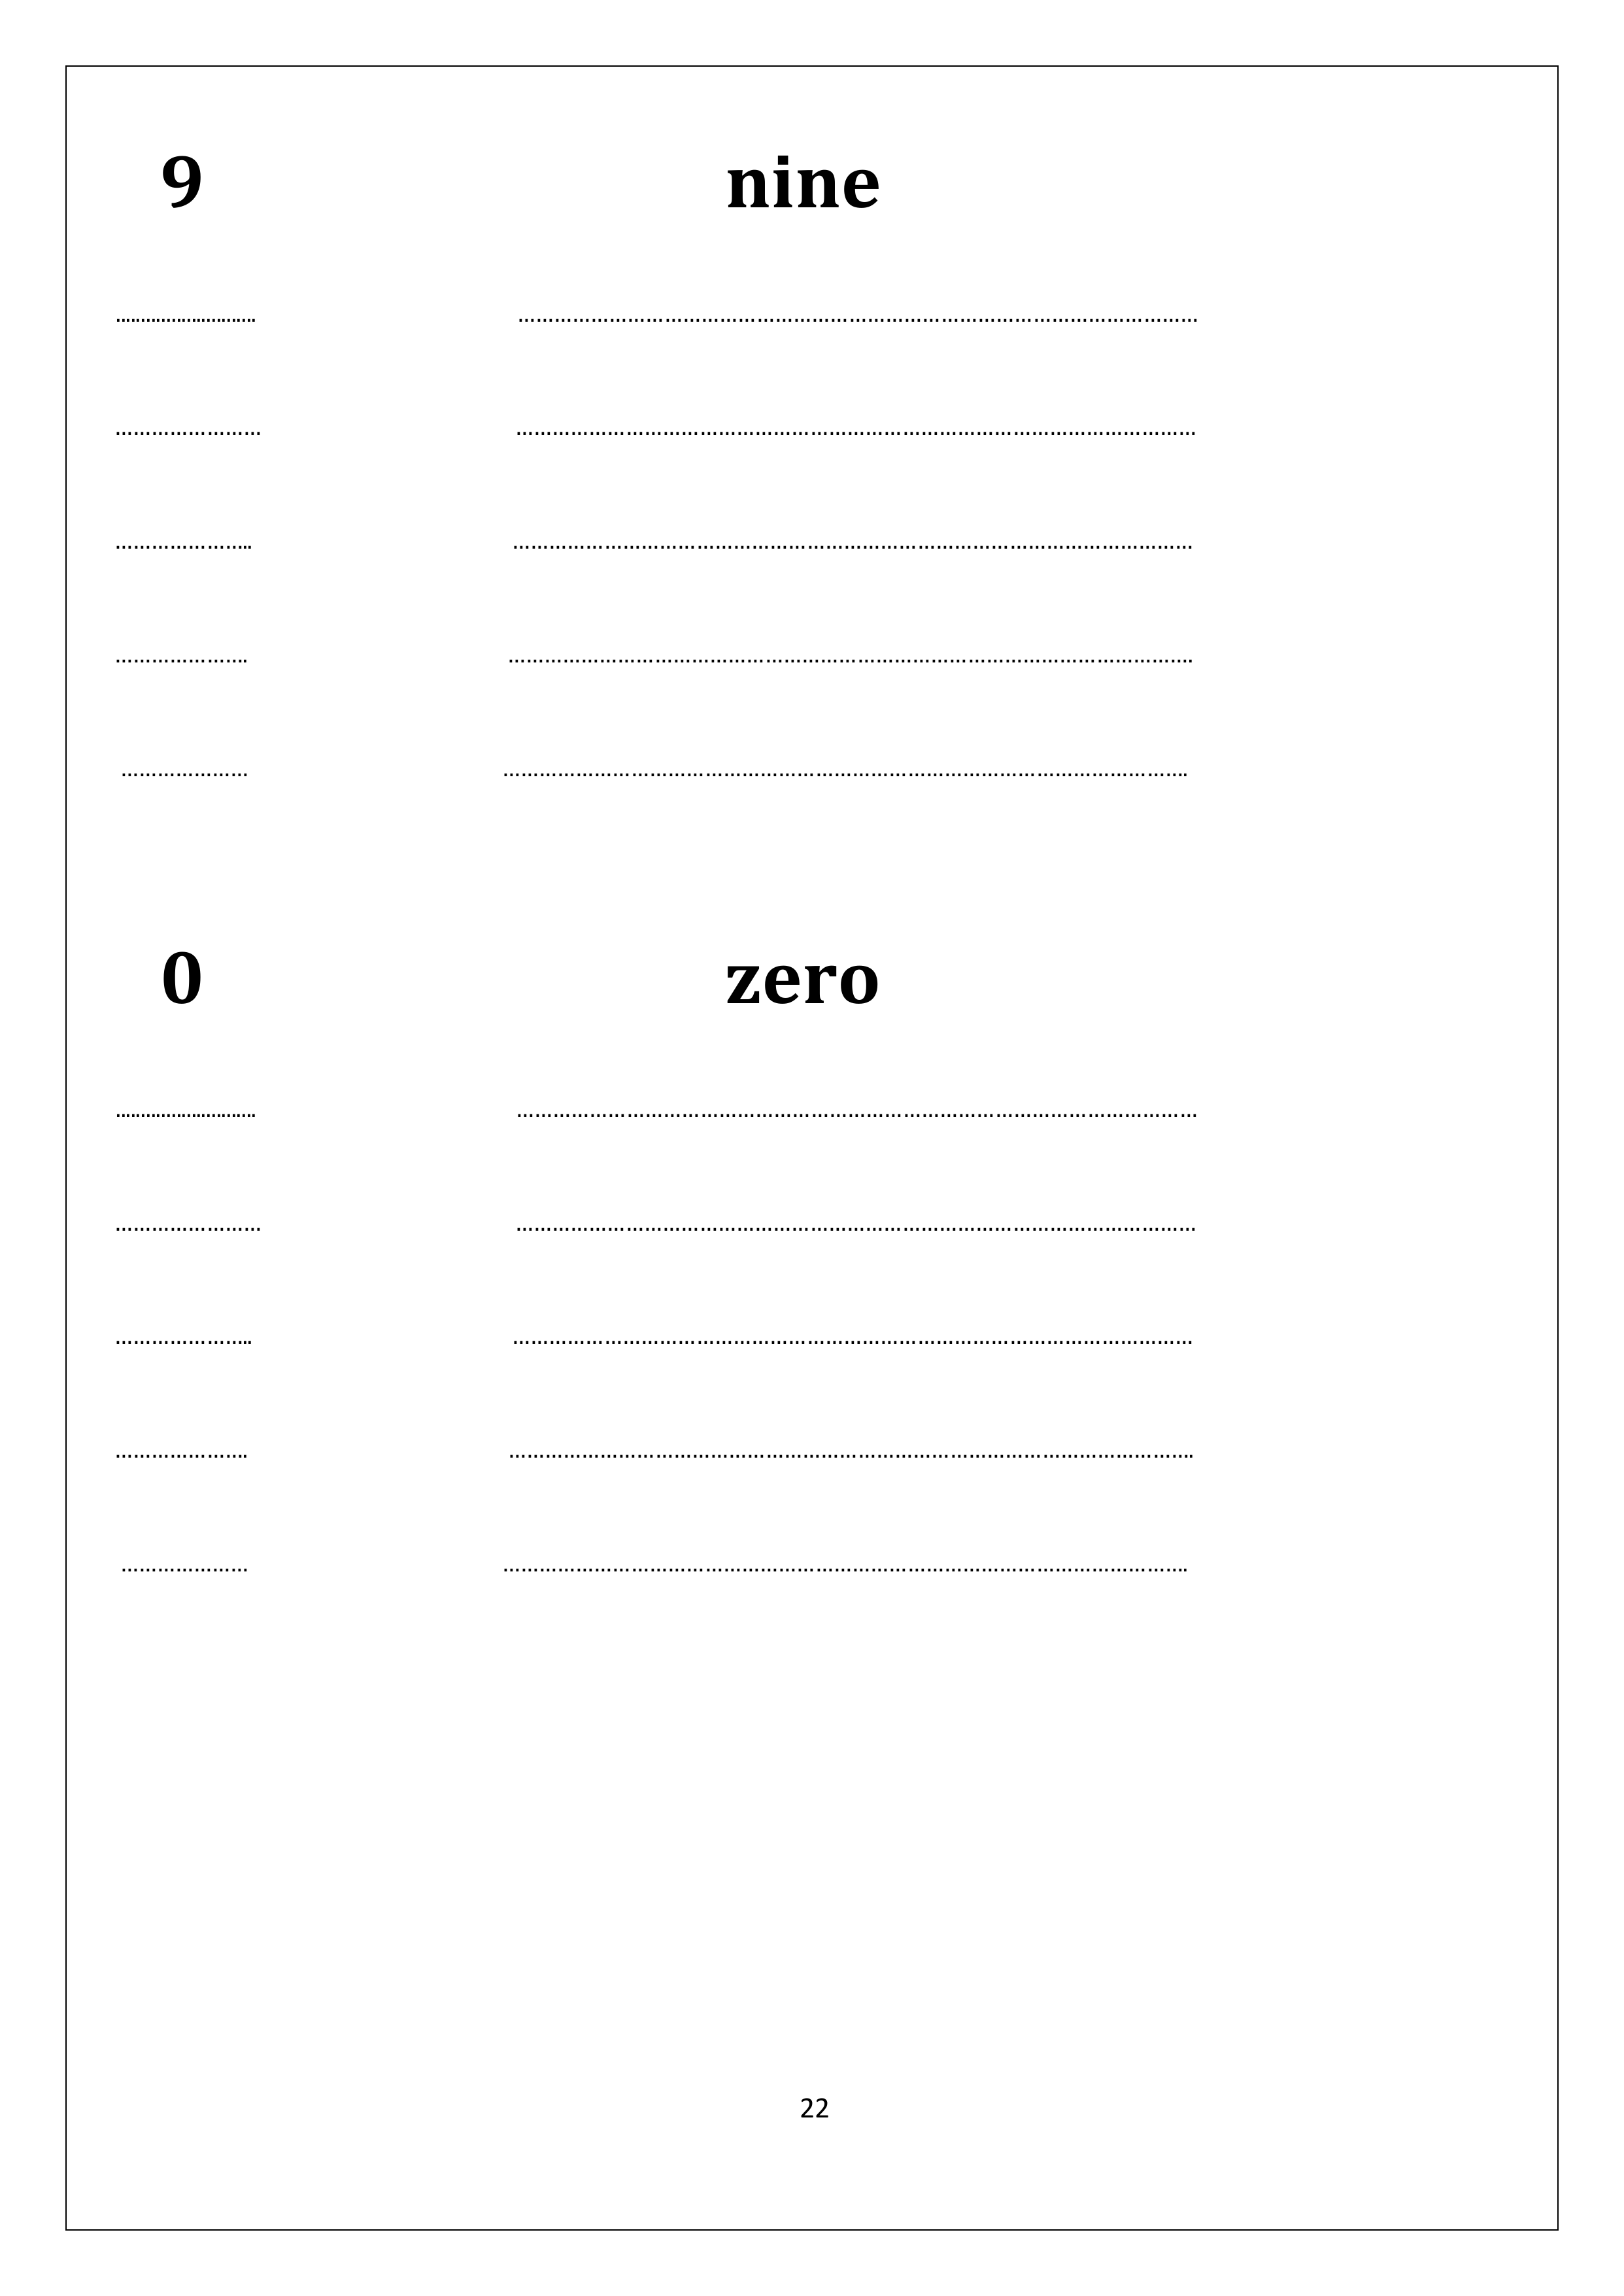 9 nine
........................... ................................................................................
........................ ................................................................................
....................... ................................................................................
...................... .................................................................................
..................... .................................................................................
0 zero
........................... ................................................................................
........................ ................................................................................
....................... ................................................................................
...................... .................................................................................
..................... .................................................................................
22